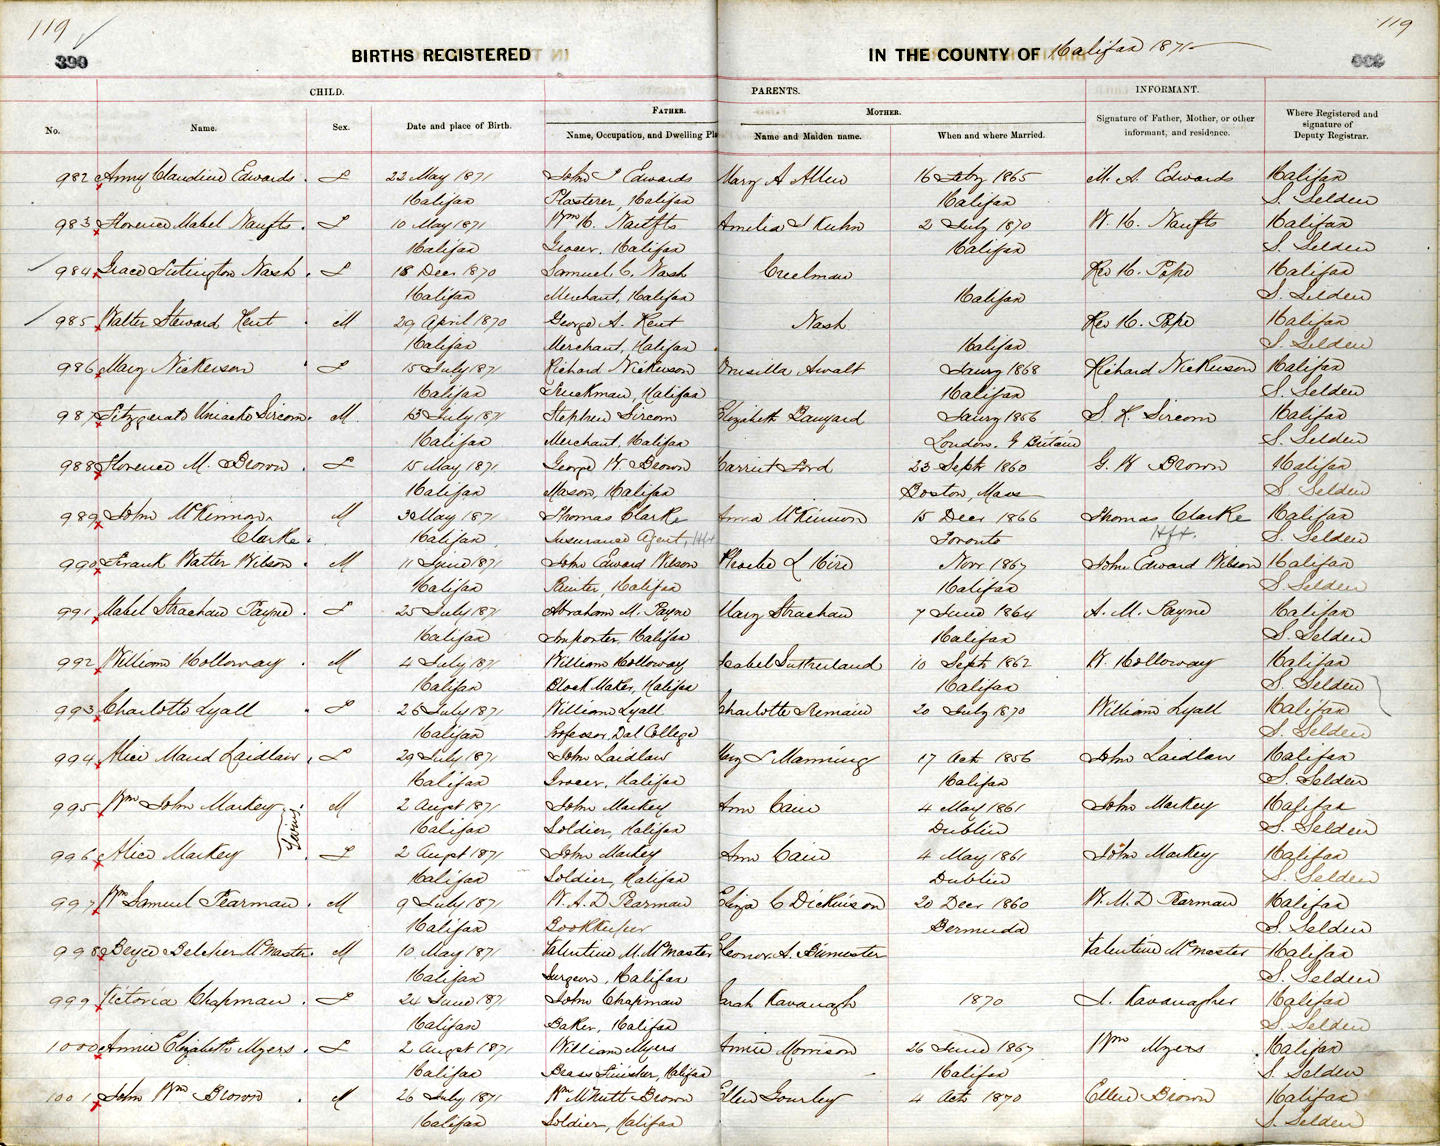 119 119
390 BIRTHS REGISTERED IN THE COUNTY OF Halifax 1871
CHILD. PARENTS. INFORMANT.
FATHER. MOTHER.
No. Name. Sex. Date and place of Birth. Name, Occupation, and Dwelling Pla Name and Maiden name. When and where Married. Signature of Father, Mother, or other informant, and residence. Where Registered and signature of Deputy Registrar.
982 Anny Claudine Edwards. F 22 May 1871 John J Edwards Mary A Allen 16 Feby 1865 M. A. Edwards Halifax
Halifax Plasterer, Halifax Halifax S. Selden
983 Florence Mabel Naufts. F 10 May 1871 Wm H. Naufts Amelia J Kuhn 2 July 1870 W. H. Naufts Halifax
Halifax Grocer. Halifax Halifax S. Selden
984 Grace Nash. F 18 Decr 1870 Samuel C. Nash Creelman Rev H. Pope Halifax
Halifax Merchant, Halifax Halifax S. Selden
985 Walter Steward Kent M 29 April 1870 George A. Kent Nash Rev H. Pope Halifax
Halifax Merchant, Halifax Halifax S. Selden
986 Mary Nickerson F 15 July 1871 Richard Nickerson Drusilla Awalt Jany 1868 Richard Nickerson Halifax
Halifax Truckman, Halifax Halifax S. Selden
987 Fitzgerald Uniacke Sircom. M. 13 July 1871 Stephen Sircom Elizabeth Jany 1856 S. R. Sircom Halifax
Halifax Merchant, Halifax London. G Britain S. Selden
988 Florence M. Brown. F 15 May 1871 George W Brown Harriet Ford 23 Sept 1860 G. W Brown Halifax
Halifax Mason, Halifax Boston, Mass S. Selden
989 John McKinnon M 3 May 1871 Thomas Clarke Anna McKinnon 15 Decr 1866 Thomas Clarke Halifax
Clarke. Halifax Insurance Agent, Hfx Toronto Hfx. S. Selden
990 Frank Walter Wilson. M 11 June 1871 John Edward Wilson Phoebe L Hire Novr 1867 John Edward Wilson Halifax
Halifax Painter, Halifax Halifax S. Selden
991 Mabel Strachan Payne. F 25 July 1871 Abraham M. Payne Mary Strachan 7 June 1864 A. M. Payne Halifax
Halifax Importer, Halifax Halifax S. Selden
992 William Holloway. M 4 July 1871 William Holloway Isabel Sutherland 10 Sept 1862 W. Holloway Halifax
Halifax Block Maker, Halifax Halifax S. Selden
993 Charlotte Lyall. F 26 July 1871 William Lyall Charlotte 20 July 1870 William Lyall Halifax
Halifax Professor, Dal College S. Selden
994 Alice Maud Laidlaw. F 29 July 1871 John Laidlaw Mary J Manning 17 Oct 1856 John Laidlaw Halifax
Halifax Grocer, Halifax Halifax S. Selden
995 Wm John Markey. Twins M 2 Augst 1871 John Markey Ann Cain 4 May 1861 John Markey Halifax
Halifax Soldier, Halifax Dublin S. Selden
996 Alice Markey F 2 Augst 1871 John Markey Ann Cain 4 May 1861 John Markey Halifax
Halifax Soldier, Halifax Dublin S. Selden
997 Wm Samuel Pearman. M 9 July 1871 W. A. D Pearman Eliza C Dickinson 20 Decr 1860 W. M. D Pearman Halifax
Halifax Bookkeeper Bermuda S. Selden
998 Belcher McMaster. M 10 May 1871 Valentine M. McMaster Eleonor A. Valentine McMaster Halifax
Halifax Surgeon, Halifax S. Selden
999 Victoria Chapman. F 24 June 1871 John Chapman Sarah Kavanagh 1870 Halifax
Halifax Baker, Halifax S. Selden
1000 Annie Elizabeth Myers. F 2 Augst 1871 William Myers Annie Morrison 26 June 1867 Wm Myers Halifax
Halifax Brass Finisher, Halifax Halifax S. Selden
1001 John Wm Brown. M 26 July 1871 Wm Brown Ellen Gourley 4 Oct 1870 Ellen Brown Halifax
Halifax Soldier, Halifax S. Selden